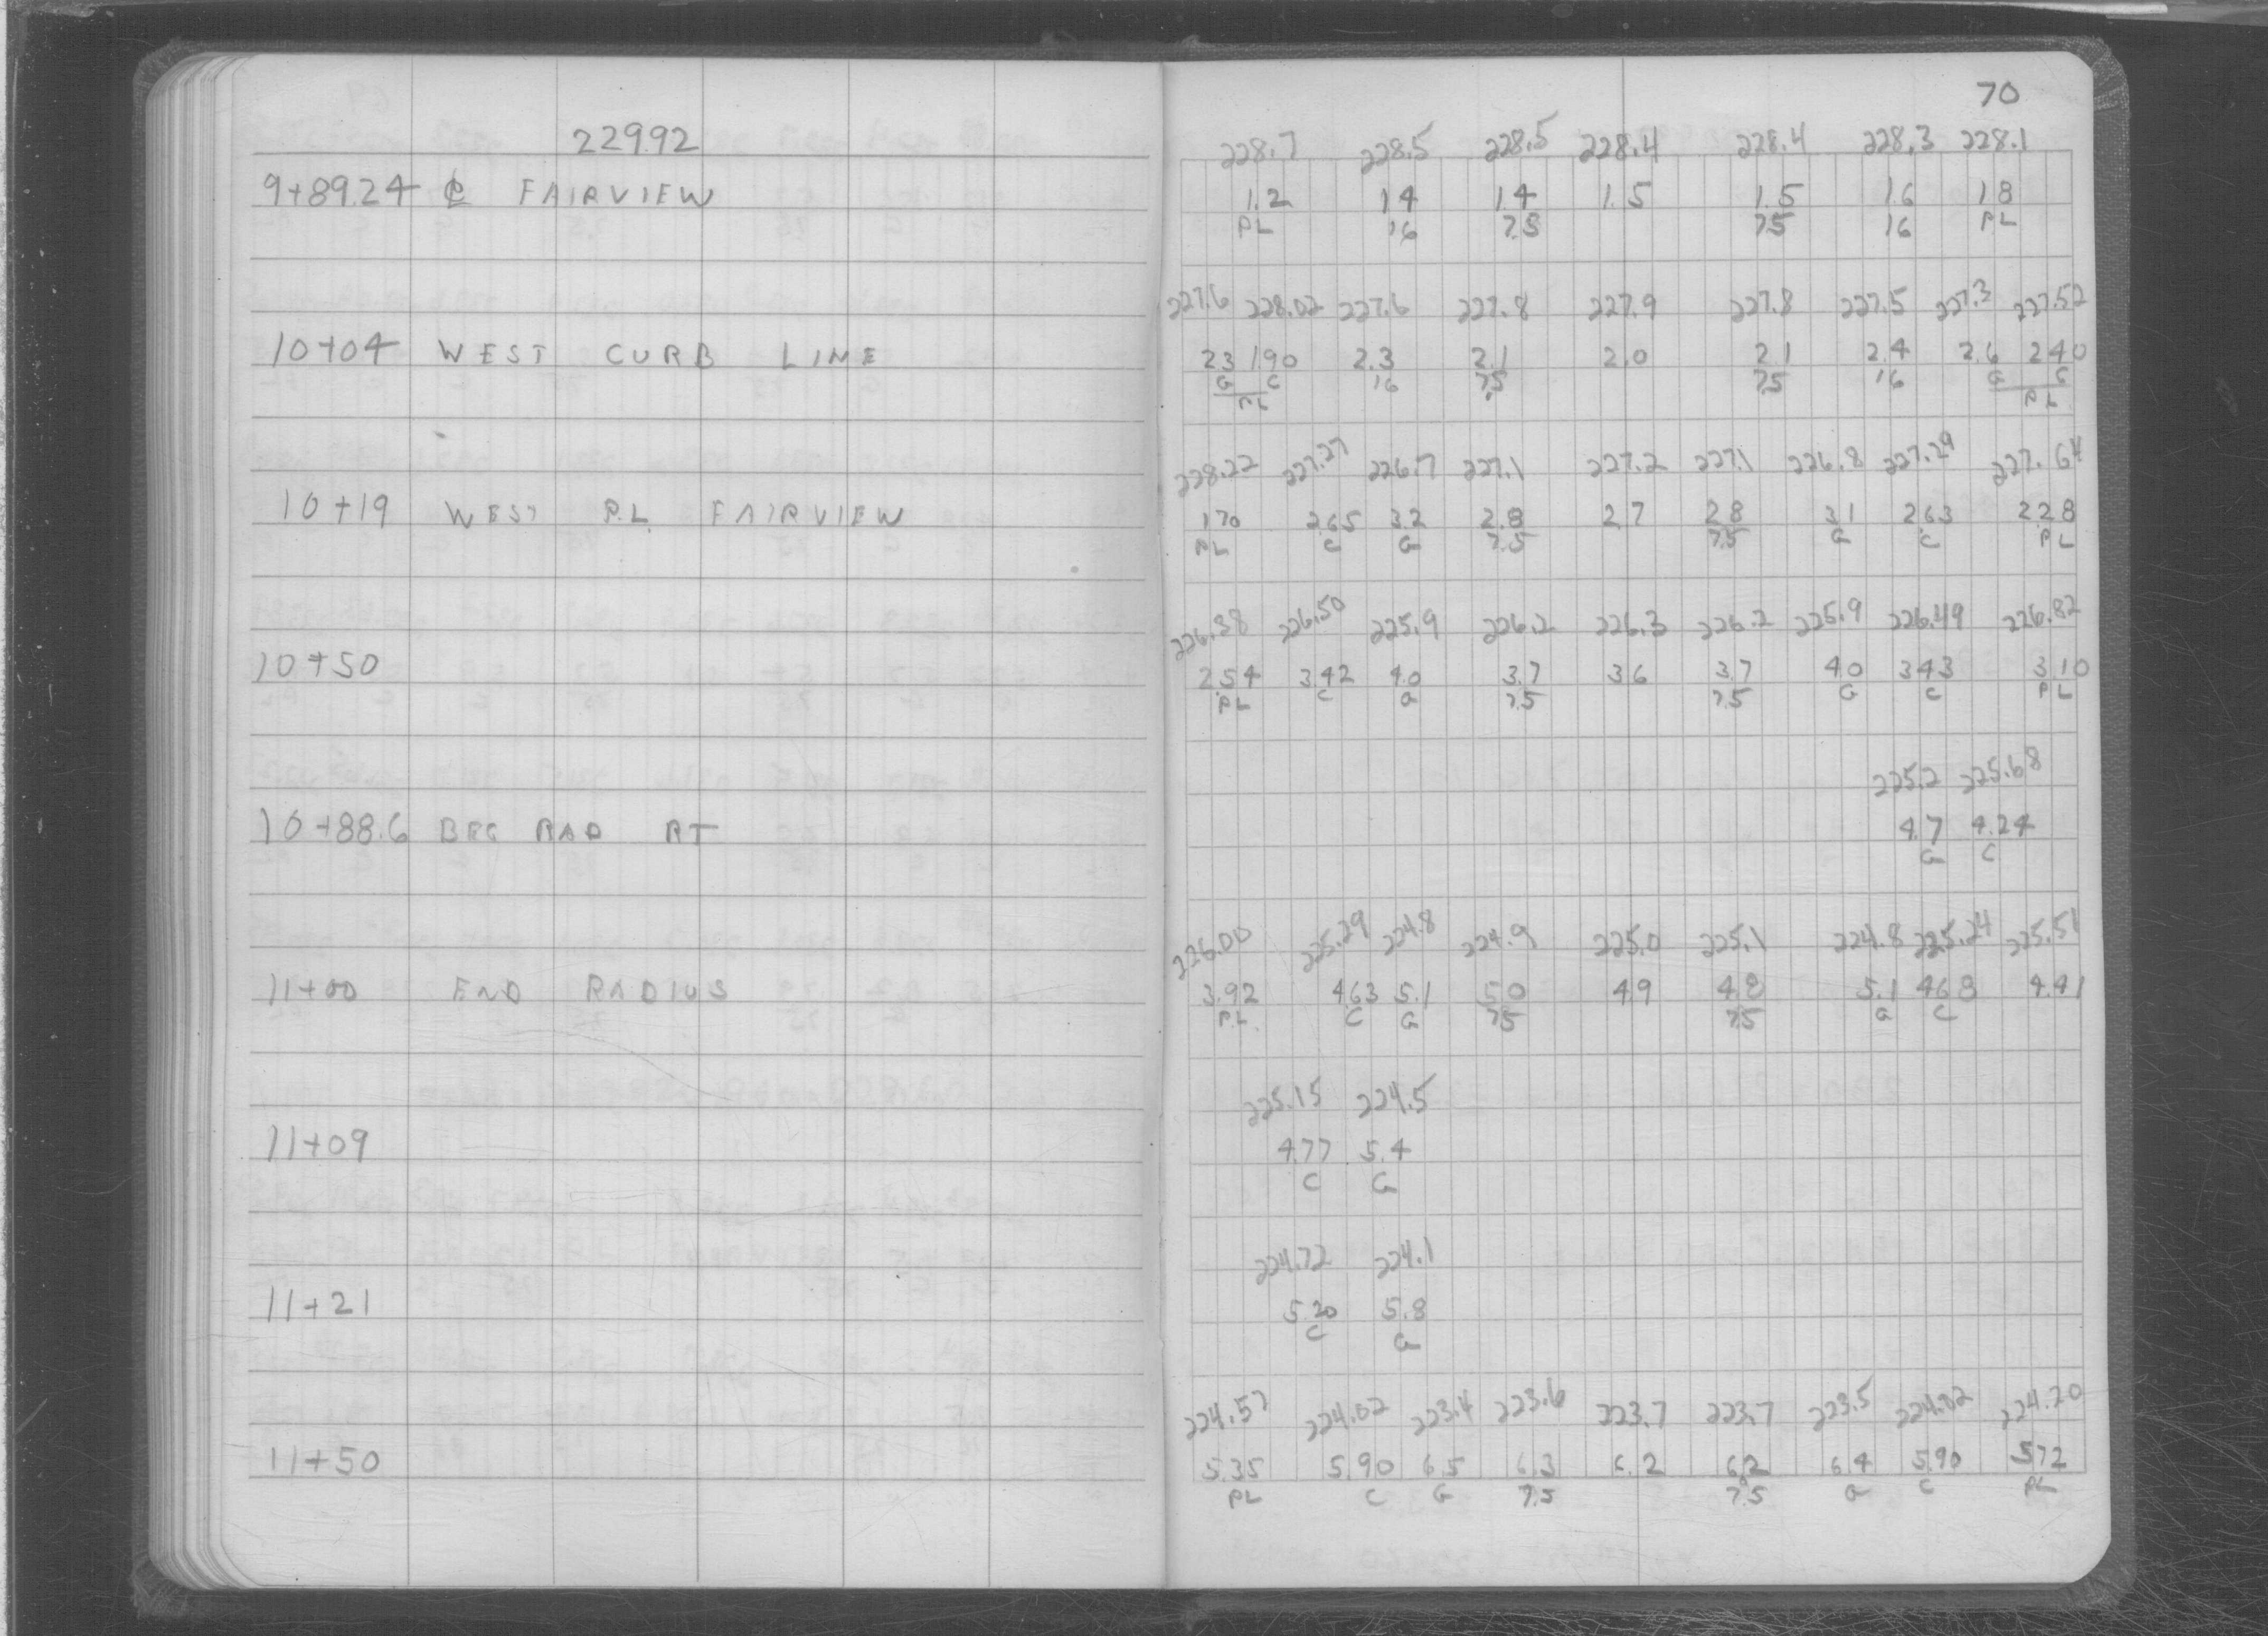 70
22992
228.7 228.5 228.5 228.4 228.4 228.3 228.1
9+89.24 ℄ FAIRVIEW 1.2 1.4 1.4 1.5 1.5 1.6 1.8
PL 16 7.5 7.5 16 PL
227.6 228.02 227.6 227.8 227.9 227.8 227.5 227.3 227.52
10+04 WEST CURB LINE 2.3 1.90 2.3 2.1 2.0 2.1 2.4 2.6 2.40
G C 16 7.5 7.5 16 G C
PL PL
228.22 227.27 226.7 227.1 227.2 227.1 226.8 227.29 227.64
10+19 WEST P.L. FAIRVIEW 1.70 2.65 3.2 2.8 2.7 2.8 3.1 2.63 2.28
PL C G 7.5 7.5 G C PL
226.38 226.50 225.9 226.2 226.3 226.2 225.9 226.49 226.82
10+50 2.54 3.42 4.0 3.7 3.6 3.7 4.0 3.43 3.10
PL C G 7.5 7.5 G C PL
225.2 225.68
10+88.6 BEG RAD RT 4.7 4.24
G C
226.00 225.29 224.8 224.9 225.0 225.1 224.8 225.24 225.51
11+00 END RADIUS 3.92 4.63 5.1 5.0 4.9 4.8 5.1 4.68 4.41
PL C G 7.5 7.5 G C
225.15 224.5
11+09 4.77 5.4
C G
224.72 224.1
11+21 5.20 5.8
C G
224.57 224.02 223.4 223.6 223.7 223.7 223.5 224.02 224.20
11+50 5.35 5.90 6.5 6.3 6.2 6.2 6.4 5.90 5.72
PL C G 7.5 7.5 G C PL